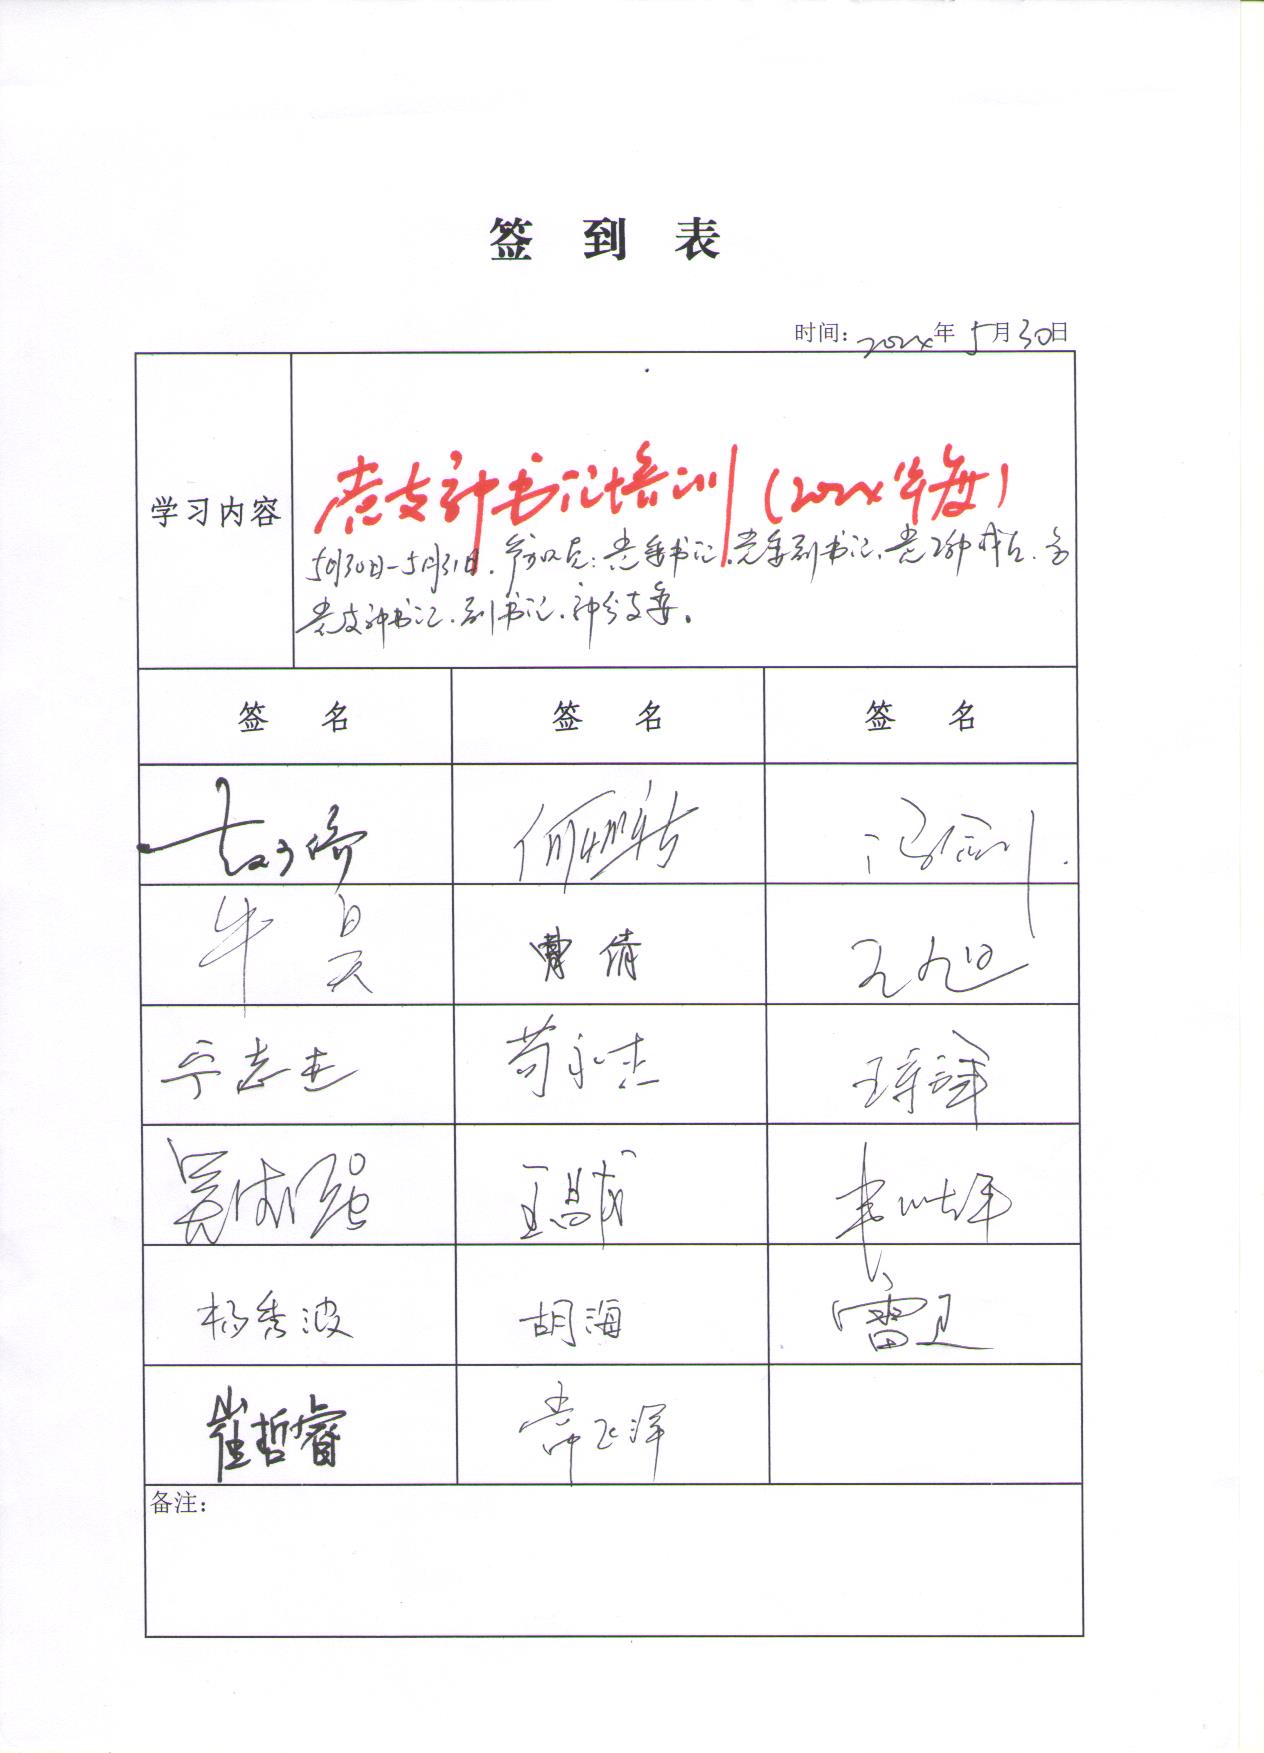 签 到 表
时间：2024年5月30日
学习内容
党支部书记培训（2024年度）
5月30日-5月31日. 参加人员：党委书记、党委副书记、党工部成员、各
党支部书记、副书记、部分支委。
签 名 签 名 签 名
牛昊 曹倩 王旭
宁志杰 苟永杰
吴成强
杨秀波 胡海 雷卫
崔哲睿 常飞洋
备注：